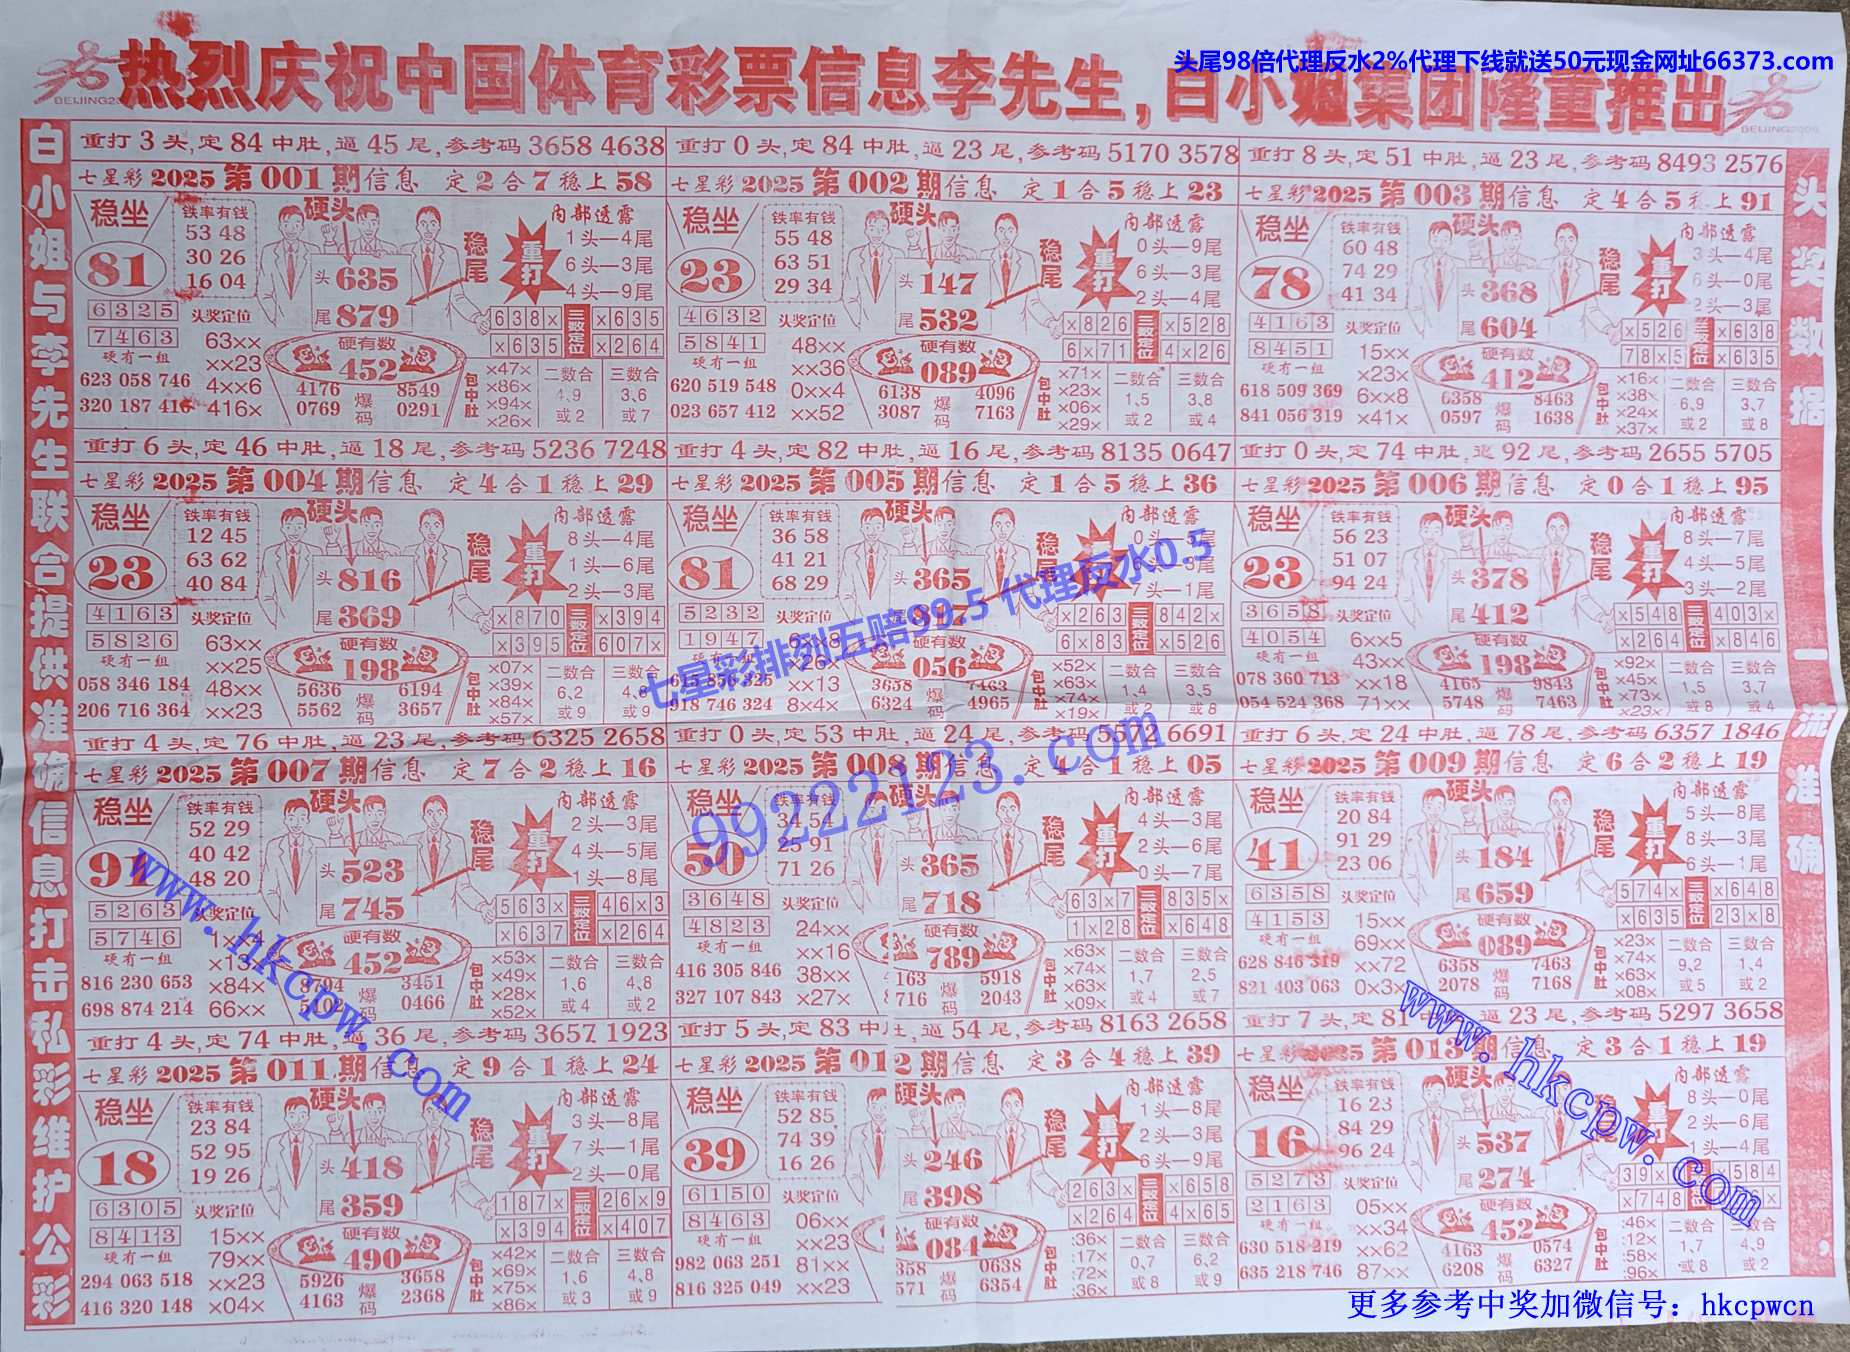 头尾98倍代理反水2%代理下线就送50元现金网址66373.com
热烈庆祝中国体育彩票信息李先生,白小姐集团隆重推出
白小姐与李先生联合提供准确信息打击私彩维护公彩
头奖数据一流准确
重打3头,定84中肚,逼45尾,参考码3658 4638
七星彩2025第001期信息 定2合7稳上58
稳坐 81
铁率有钱
53 48
30 26
16 04
硬头
头635
尾879
稳尾
重打
内部透露
1头—4尾
6头—3尾
4头—9尾
6325
7463
硬有一组
623 058 746
320 187 416
头奖定位
63××
××23
4××6
416×
硬有数
452
4176 8549
0769 爆码 0291
638× 三数定位 ×635
×635 ×264
包中肚
×47×
×86×
×94×
×26×
二数合
4,9
或2
三数合
3,6
或7
重打0头,定84中肚,逼23尾,参考码5170 3578
七星彩2025第002期信息 定1合5稳上23
稳坐 23
铁率有钱
55 48
63 51
29 34
硬头
头147
尾532
稳尾
重打
内部透露
0头—9尾
6头—3尾
2头—4尾
4632
5841
硬有一组
620 519 548
023 657 412
头奖定位
48××
××36
0××4
××52
硬有数
089
6138 4096
3087 爆码 7163
×826 三数定位 ×528
6×71 4×26
包中肚
×71×
×23×
×06×
×29×
二数合
1,5
或2
三数合
3,8
或4
重打8头,定51中肚,逼23尾,参考码8493 2576
七星彩2025第003期信息 定4合5稳上91
稳坐 78
铁率有钱
60 48
74 29
41 34
硬头
头368
尾604
稳尾
重打
内部透露
3头—4尾
6头—0尾
2头—3尾
4163
8451
硬有一组
618 509 369
841 056 319
头奖定位
15××
×23×
6××8
×41×
硬有数
412
6358 8463
0597 爆码 1638
×526 三数定位 ×638
78×5 ×635
包中肚
×16×
×38×
×24×
×37×
二数合
6,9
或2
三数合
3,7
或8
重打6头,定46中肚,逼18尾,参考码5236 7248
七星彩2025第004期信息 定4合1稳上29
稳坐 23
铁率有钱
12 45
63 62
40 84
硬头
头816
尾369
稳尾
重打
内部透露
8头—4尾
1头—6尾
2头—3尾
4163
5826
硬有一组
058 346 184
206 716 364
头奖定位
63××
××25
48××
××23
硬有数
198
5636 6194
5562 爆码 3657
×870 三数定位 ×394
×395 607×
包中肚
×07×
×39×
×84×
×57×
二数合
6,2
或9
三数合
4,8
或9
重打4头,定82中肚,逼16尾,参考码8135 0647
七星彩2025第005期信息 定1合5稳上36
稳坐 81
铁率有钱
36 58
41 21
68 29
硬头
头365
稳尾
内部透露
7头—1尾
5232
1947
硬有一组
615 856 325
918 746 324
头奖定位
6××8
×26×
××13
8×4×
硬有数
056
3658 7463
6324 爆码 4965
×263 三数定位 842×
6×83 ×526
包中肚
×52×
×63×
×74×
×19×
二数合
1,4
或2
三数合
3,5
或8
重打0头,定74中肚,逼92尾,参考码2655 5705
七星彩2025第006期信息 定0合1稳上95
稳坐 23
铁率有钱
56 23
51 07
94 24
硬头
头378
尾412
稳尾
重打
内部透露
8头—7尾
4头—5尾
3头—2尾
3658
4054
硬有一组
078 360 713
054 524 368
头奖定位
6××5
43××
××18
71××
硬有数
198
4165 9843
5748 爆码 7463
×548 三数定位 403×
×264 ×846
包中肚
×92×
×45×
×73×
×23×
二数合
1,5
或8
三数合
3,7
或4
七星彩排列五赔99.5 代理反水0.5
99222123.com
重打4头,定76中肚,逼23尾,参考码6325 2658
七星彩2025第007期信息 定7合2稳上16
稳坐 91
铁率有钱
52 29
40 42
48 20
硬头
头523
尾745
稳尾
重打
内部透露
2头—3尾
4头—5尾
1头—8尾
5263
5746
硬有一组
816 230 653
698 874 214
头奖定位
×13×
×84×
66××
硬有数
452
8794 3451
爆码 0466
563× 三数定位 46×3
×637 ×264
包中肚
×53×
×49×
×28×
×52×
二数合
1,6
或4
三数合
4,8
或2
重打0头,定53中肚,逼24尾,参考码5572 6691
七星彩2025第008期信息 定4合1稳上05
稳坐 50
铁率有钱
34 54
25 91
71 26
硬头
头365
尾718
稳尾
重打
内部透露
4头—3尾
2头—6尾
0头—7尾
3648
4823
硬有一组
416 305 846
327 107 843
头奖定位
24××
××16
38××
×27×
硬有数
789
163 5918
716 爆码 2043
63×7 三数定位 835×
1×28 ×648
包中肚
×63×
×74×
×63×
×09×
二数合
1,7
或4
三数合
2,5
或7
重打6头,定24中肚,逼78尾,参考码6357 1846
七星彩2025第009期信息 定6合2稳上19
稳坐 41
铁率有钱
20 84
91 29
23 06
硬头
头184
尾659
稳尾
重打
内部透露
5头—8尾
8头—3尾
6头—1尾
6358
4153
硬有一组
628 846 319
821 403 063
头奖定位
15××
69××
××72
0×3×
硬有数
089
6358 7463
2078 爆码 7168
574× 三数定位 ×648
×635 23×8
包中肚
×23×
×74×
×63×
×08×
二数合
9,2
或5
三数合
1,4
或2
重打4头,定74中肚,逼36尾,参考码3657 1923
七星彩2025第011期信息 定9合1稳上24
稳坐 18
铁率有钱
23 84
52 95
19 26
硬头
头418
尾359
稳尾
重打
内部透露
3头—8尾
7头—1尾
2头—0尾
6305
8413
硬有一组
294 063 518
416 320 148
头奖定位
15××
79××
××23
×04×
硬有数
490
5926 3658
4163 爆码 2368
187× 三数定位 26×9
×394 ×407
包中肚
×42×
×69×
×75×
×86×
二数合
1,6
或3
三数合
4,8
或9
重打5头,定83中肚,逼54尾,参考码8163 2658
七星彩2025第012期信息 定3合4稳上39
稳坐 39
铁率有钱
52 85
74 39
16 26
硬头
头246
尾398
稳尾
重打
内部透露
1头—8尾
2头—3尾
6头—9尾
6150
8463
硬有一组
982 063 251
816 325 049
头奖定位
06××
××23
81××
××23
硬有数
084
358 0638
571 爆码 6354
263× 三数定位 ×658
×264 4×65
包中肚
36×
17×
72×
36×
二数合
0,7
或8
三数合
6,2
或9
重打7头,定81中肚,逼23尾,参考码5297 3658
七星彩2025第013期信息 定3合1稳上19
稳坐 16
铁率有钱
16 23
84 29
96 24
硬头
头537
尾274
内部透露
8头—0尾
2头—6尾
1头—4尾
5273
2163
硬有一组
630 518 219
635 218 746
头奖定位
05××
××34
××62
87××
硬有数
452
4163 0574
6208 爆码 6327
39× ×584
×748
包中肚
46×
12×
58×
96×
二数合
1,7
或8
三数合
4,9
或2
www.hkcpw.com
www.hkcpw.com
更多参考中奖加微信号：hkcpwcn